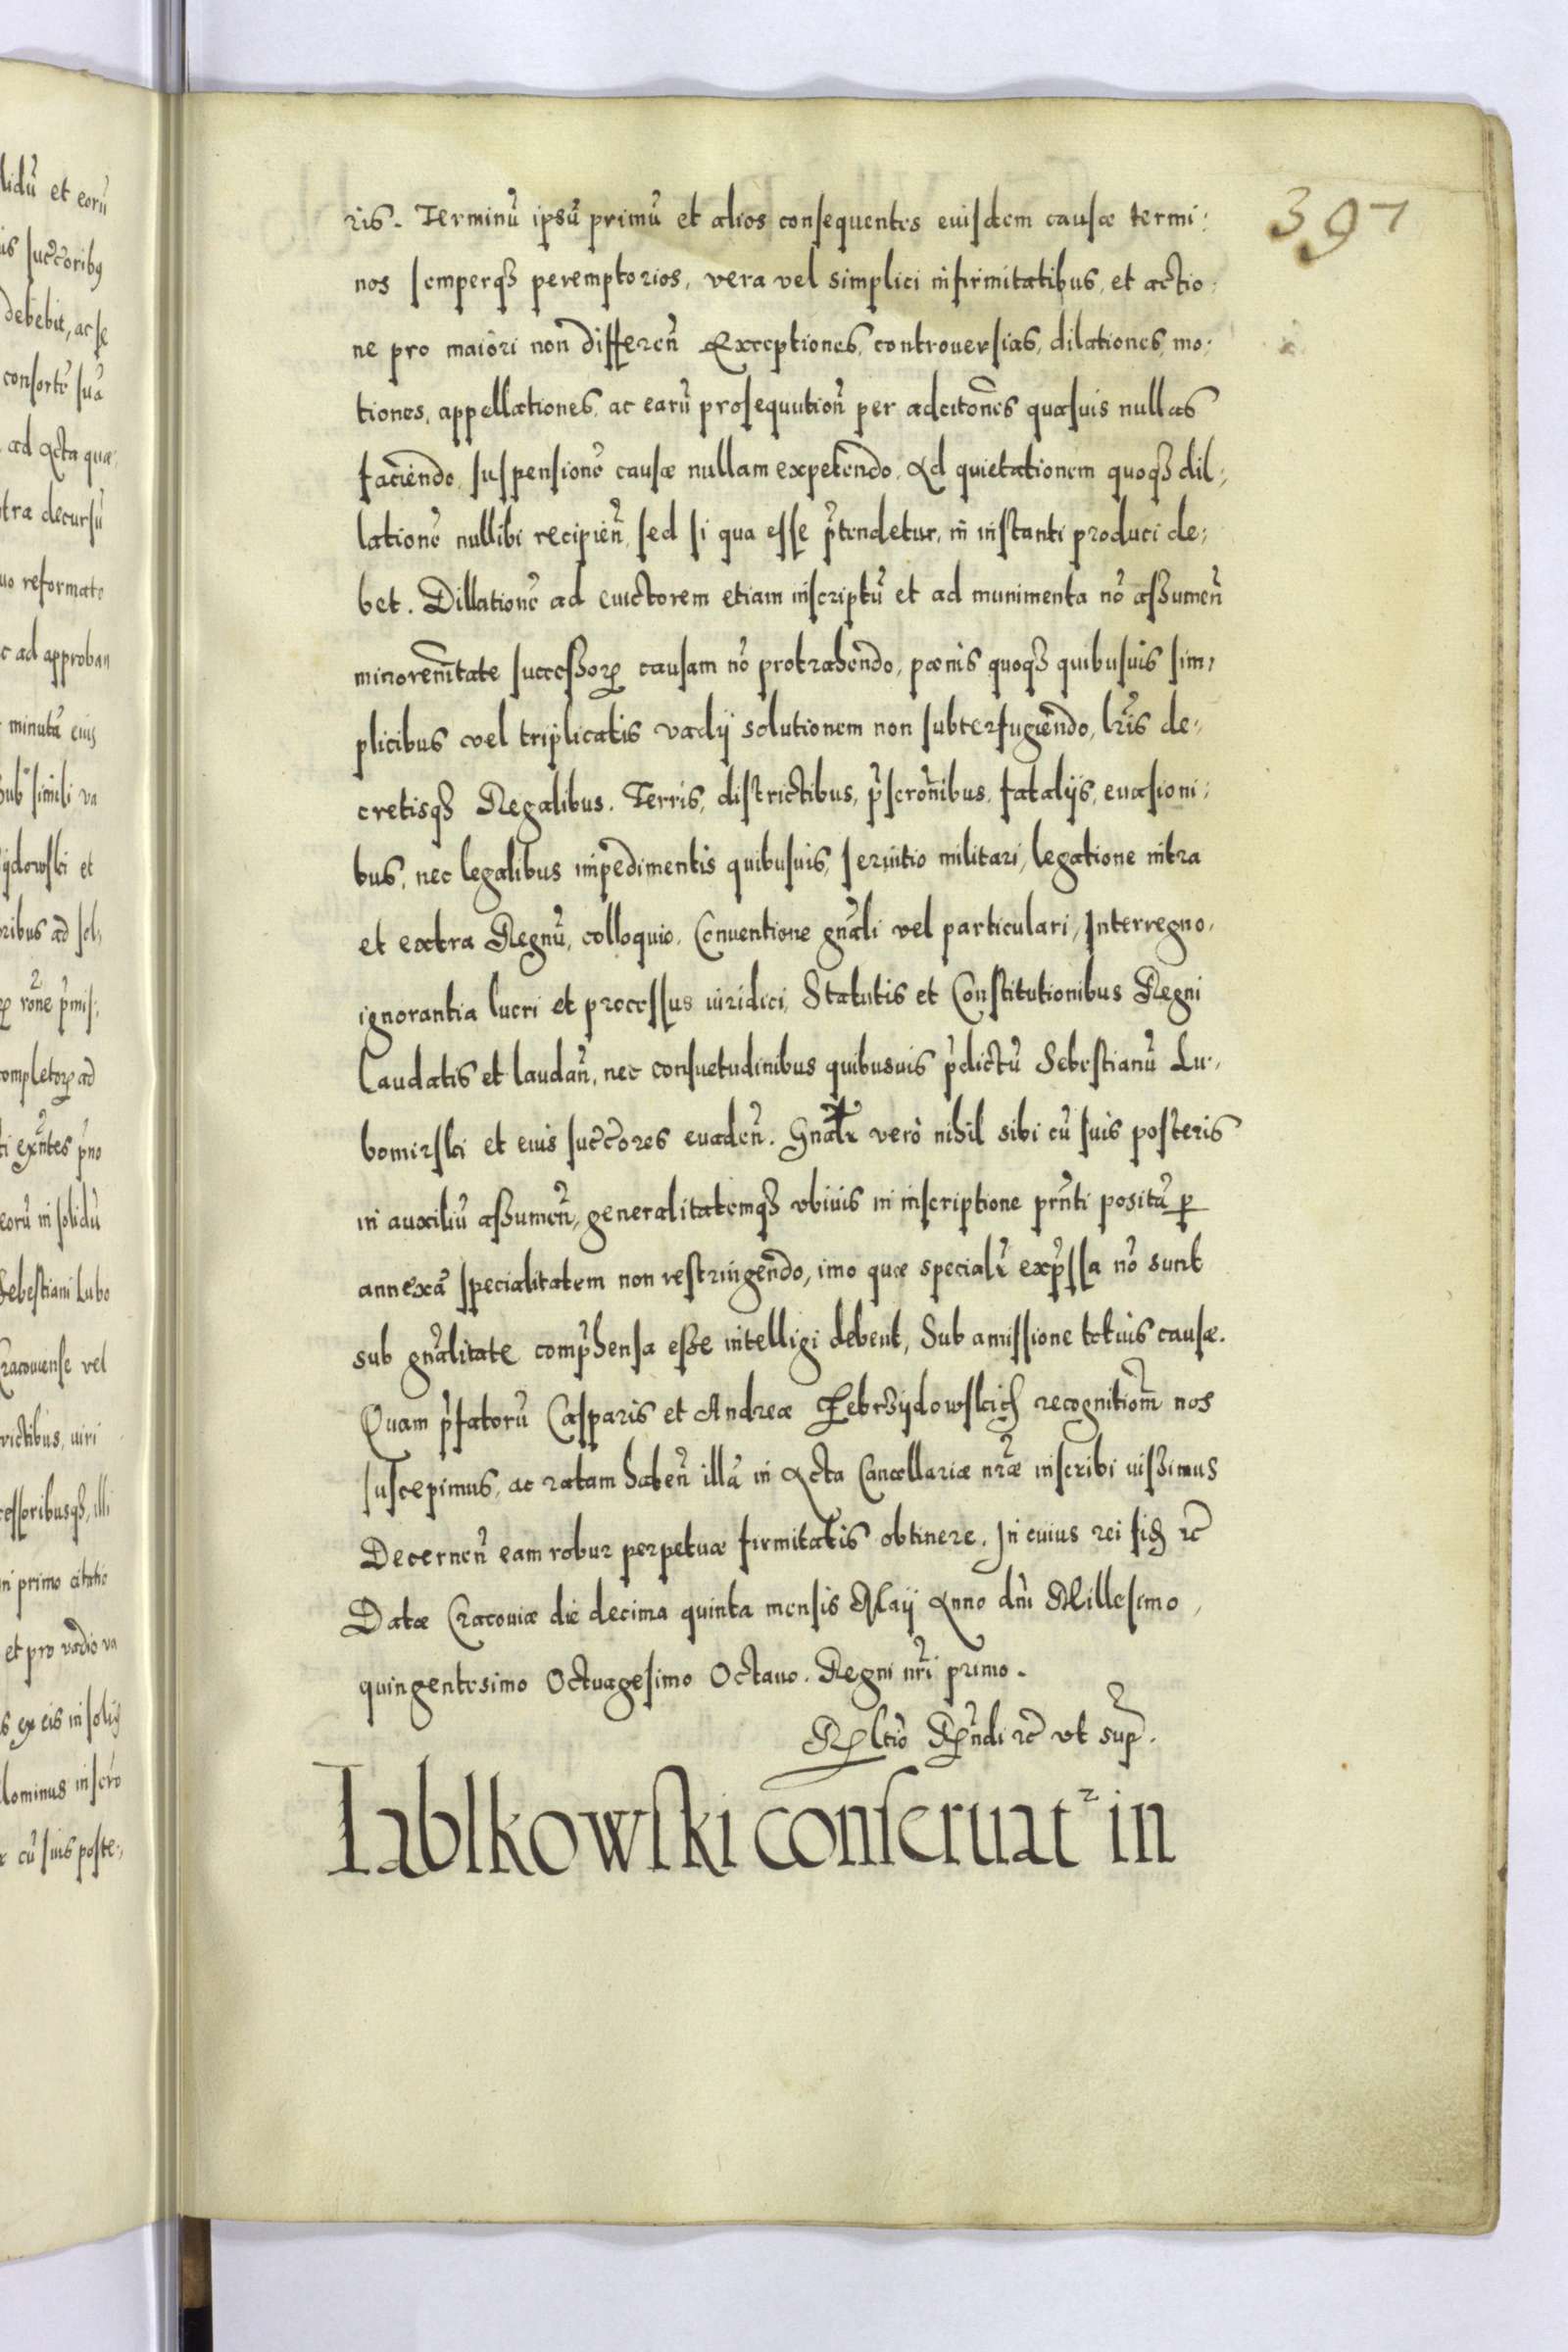 397
ris. Terminũ ipsũ primũ et alios consequentes eiusdem causæ termi:
nos semperqȝ peremptorios, vera vel simplici infirmitatibus, et actio:
ne pro maiori non differeñ Exceptiones, controuersias, dilationes, mo:
tiones, appellationes, ac earũ prosequutioñ per adcitones quasuis nullas
faciendo, suspensionẽ causæ nullam expetendo. Ad quietationem quoqȝ dil:
lationẽ nullibi recipieñ, sed si qua esse p̃tendetur, in instanti produci de:
bet. Dillationẽ ad euictorem etiam inscriptũ et ad munimenta nõ assumeñ
minorenñitate successoꝝ causam nõ protrahendo, pœnis quoqȝ quibusuis sim:
plicibus vel triplicatis vadij solutionem non subterfugiendo, lr̃is de:
cretisqȝ Regalibus. Terris, districtibus, p̃scroñibus, fatalijs, euasioni:
bus, nec legalibus impedimentis quibusuis, seruitio militari, legatione intra
et extra Regnũ, colloquio, Conuentione gñali vel particulari, Interregno,
ignorantia lucri et processus iuridici, Statutis et Constitutionibus Regni
Laudatis et laudañ, nec consuetudinibus quibusuis p̃dictũ Sebestianũ Lu:
bomirski et eius succ̃ores euadeñ. Gñalr̃ verò nihil sibi cũ suis posteris
in auxiliũ assumeñ, generalitatemqȝ vbiuis in inscriptione pr̃nti positã ꝑ
annexã specialitatem non restringendo, imo quæ specialr̃ exp̃ssa nõ sunt
sub gñalitate comp̃hensa esse intelligi debent, Sub amissione totius causæ.
Quam p̃fatorũ Casparis et Andreæ Zebrzijdowskich recognitioñm nos
suscepimus, ac ratam habeñ illã in Acta Cancellariæ nr̃æ inscribi iussimus
Decerneñ eam robur perpetuæ firmitatis obtinere. In cuius rei fid ꝛc̃
Datæ Cracouiæ die decima quinta mensis Maij Anno dñi Millesimo,
quingentesimo Octuagesimo Octauo. Regni nr̃i primo.
Rltio Rñdi ꝛc̃ vt sup̃.
Iablkowski conseruat² in